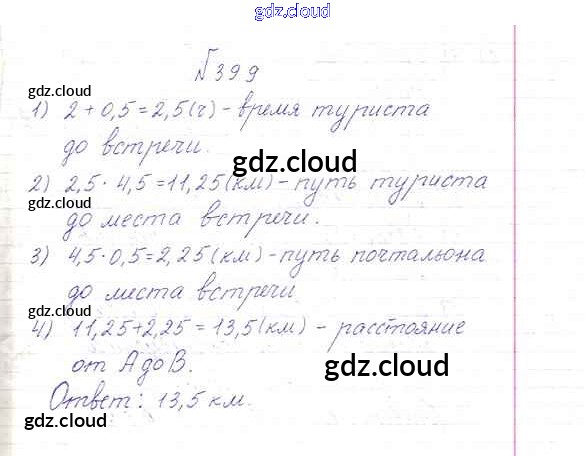 gdz.cloud
№399
gdz.cloud
1) 2 + 0,5 = 2,5 (ч) - время туриста
до встречи.
gdz.cloud
2) 2,5 · 4,5 = 11,25 (км) - путь туриста
gdz.cloud
до места встречи.
3) 4,5 · 0,5 = 2,25 (км) - путь почтальона
до места встречи
gdz.cloud
4) 11,25 + 2,25 = 13,5 (км) - расстояние
от А до В.
gdz.cloud
Ответ: 13,5 км.
gdz.cloud